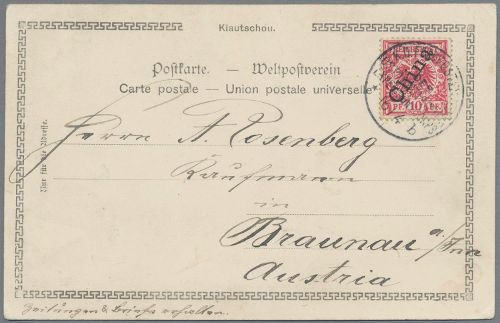 Kiautschou.
Postkarte. — Weltpostverein
Carte postale — Union postale universelle
China
PF. 10 PF.
Nur für die Adresse.
Herrn A. Rosenberg
Kaufmann
in
Braunau a/Inn
Austria
Zeitungen & Briefe erhalten.